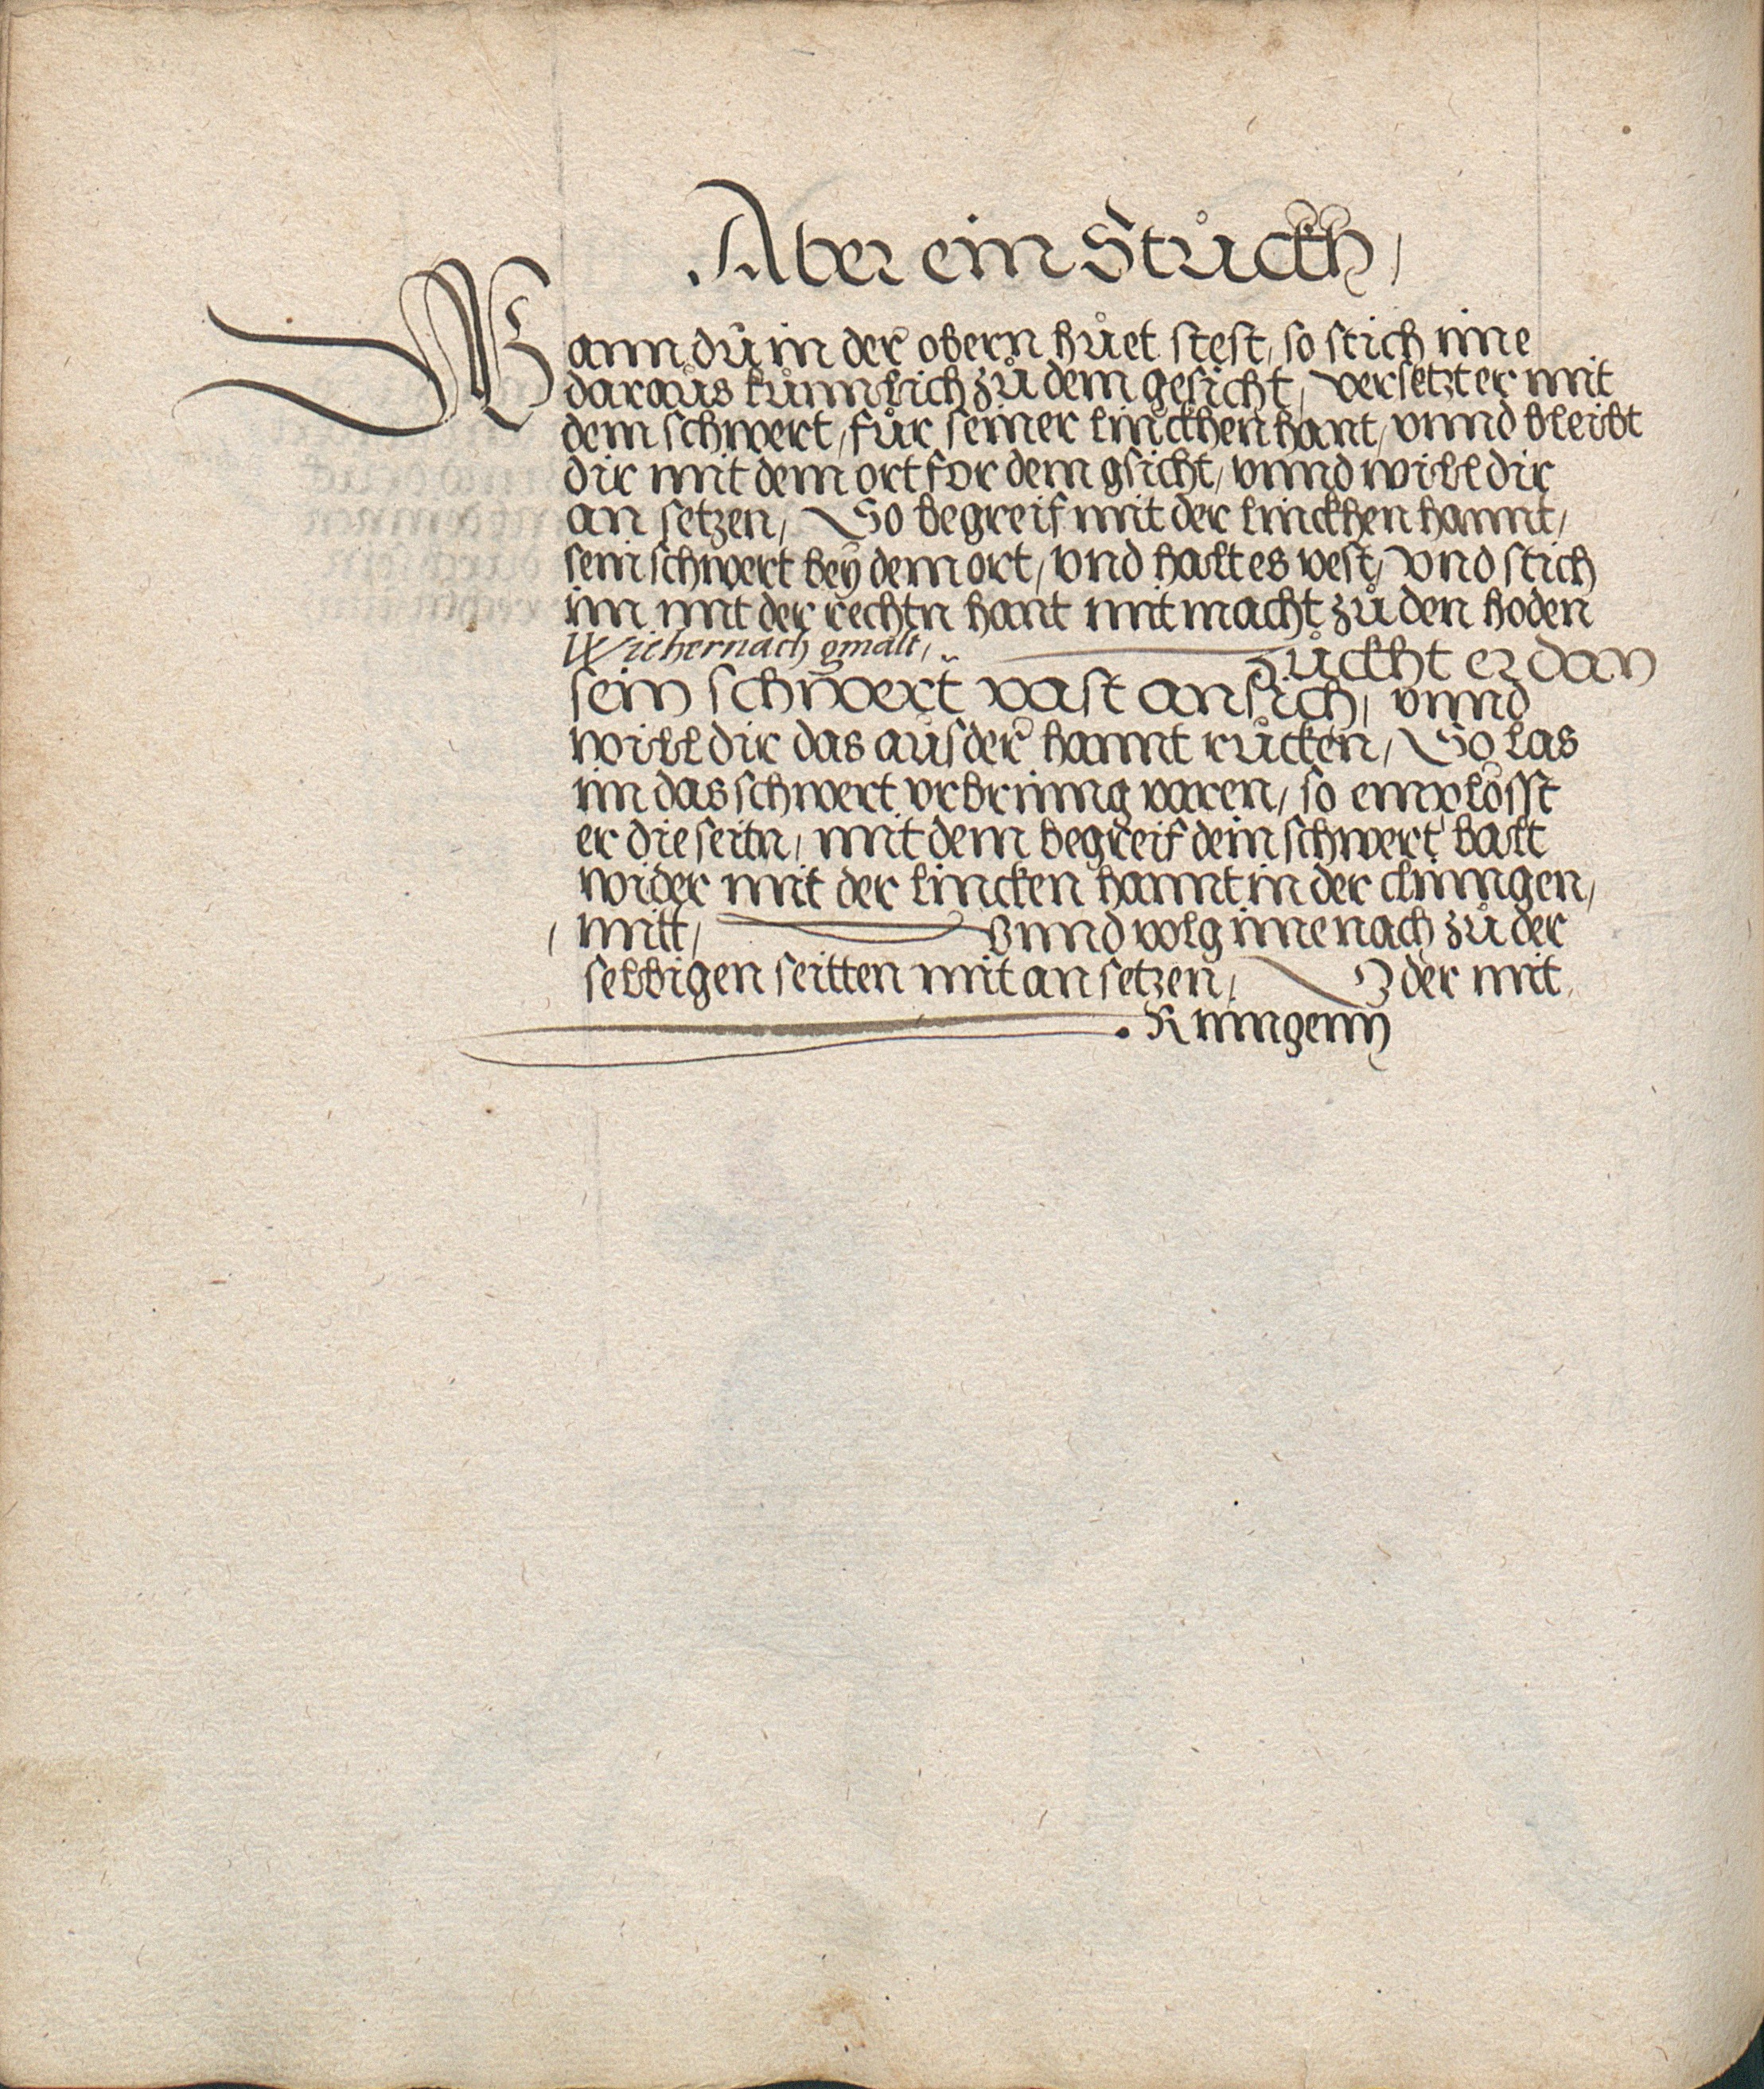 Aber ein Stůckh,
Wann dů in der obern hůet stest, so stich ime
daraůs kůmmlich zů dem gesicht, versetzt er mit
dem schwert, fůr seiner linckhen hant, vnnd bleibt
dir mit dem ort for dem gsicht, vnnd will dir
an setzen, So begreif mit der linckhen hannt,
sein schwert bey dem ort, vnd halt es vest, vnd stich
im mit der rechtn hant mit macht zů den hoden
Wie hernach gmalt, zůckht er dan
sein schwert vast an sich, vnnd
will dir das aůs der hannt růcken, So las
im das schwert vrbringg varen, so emplösst
er die seitn, mit dem begreif dein schwert balt
wider mit der lincken hannt in der clinngen,
mitt, Vnnd volg ime nach zů der
selbigen seitten mit an setzen, Oder mit
Rinngenn